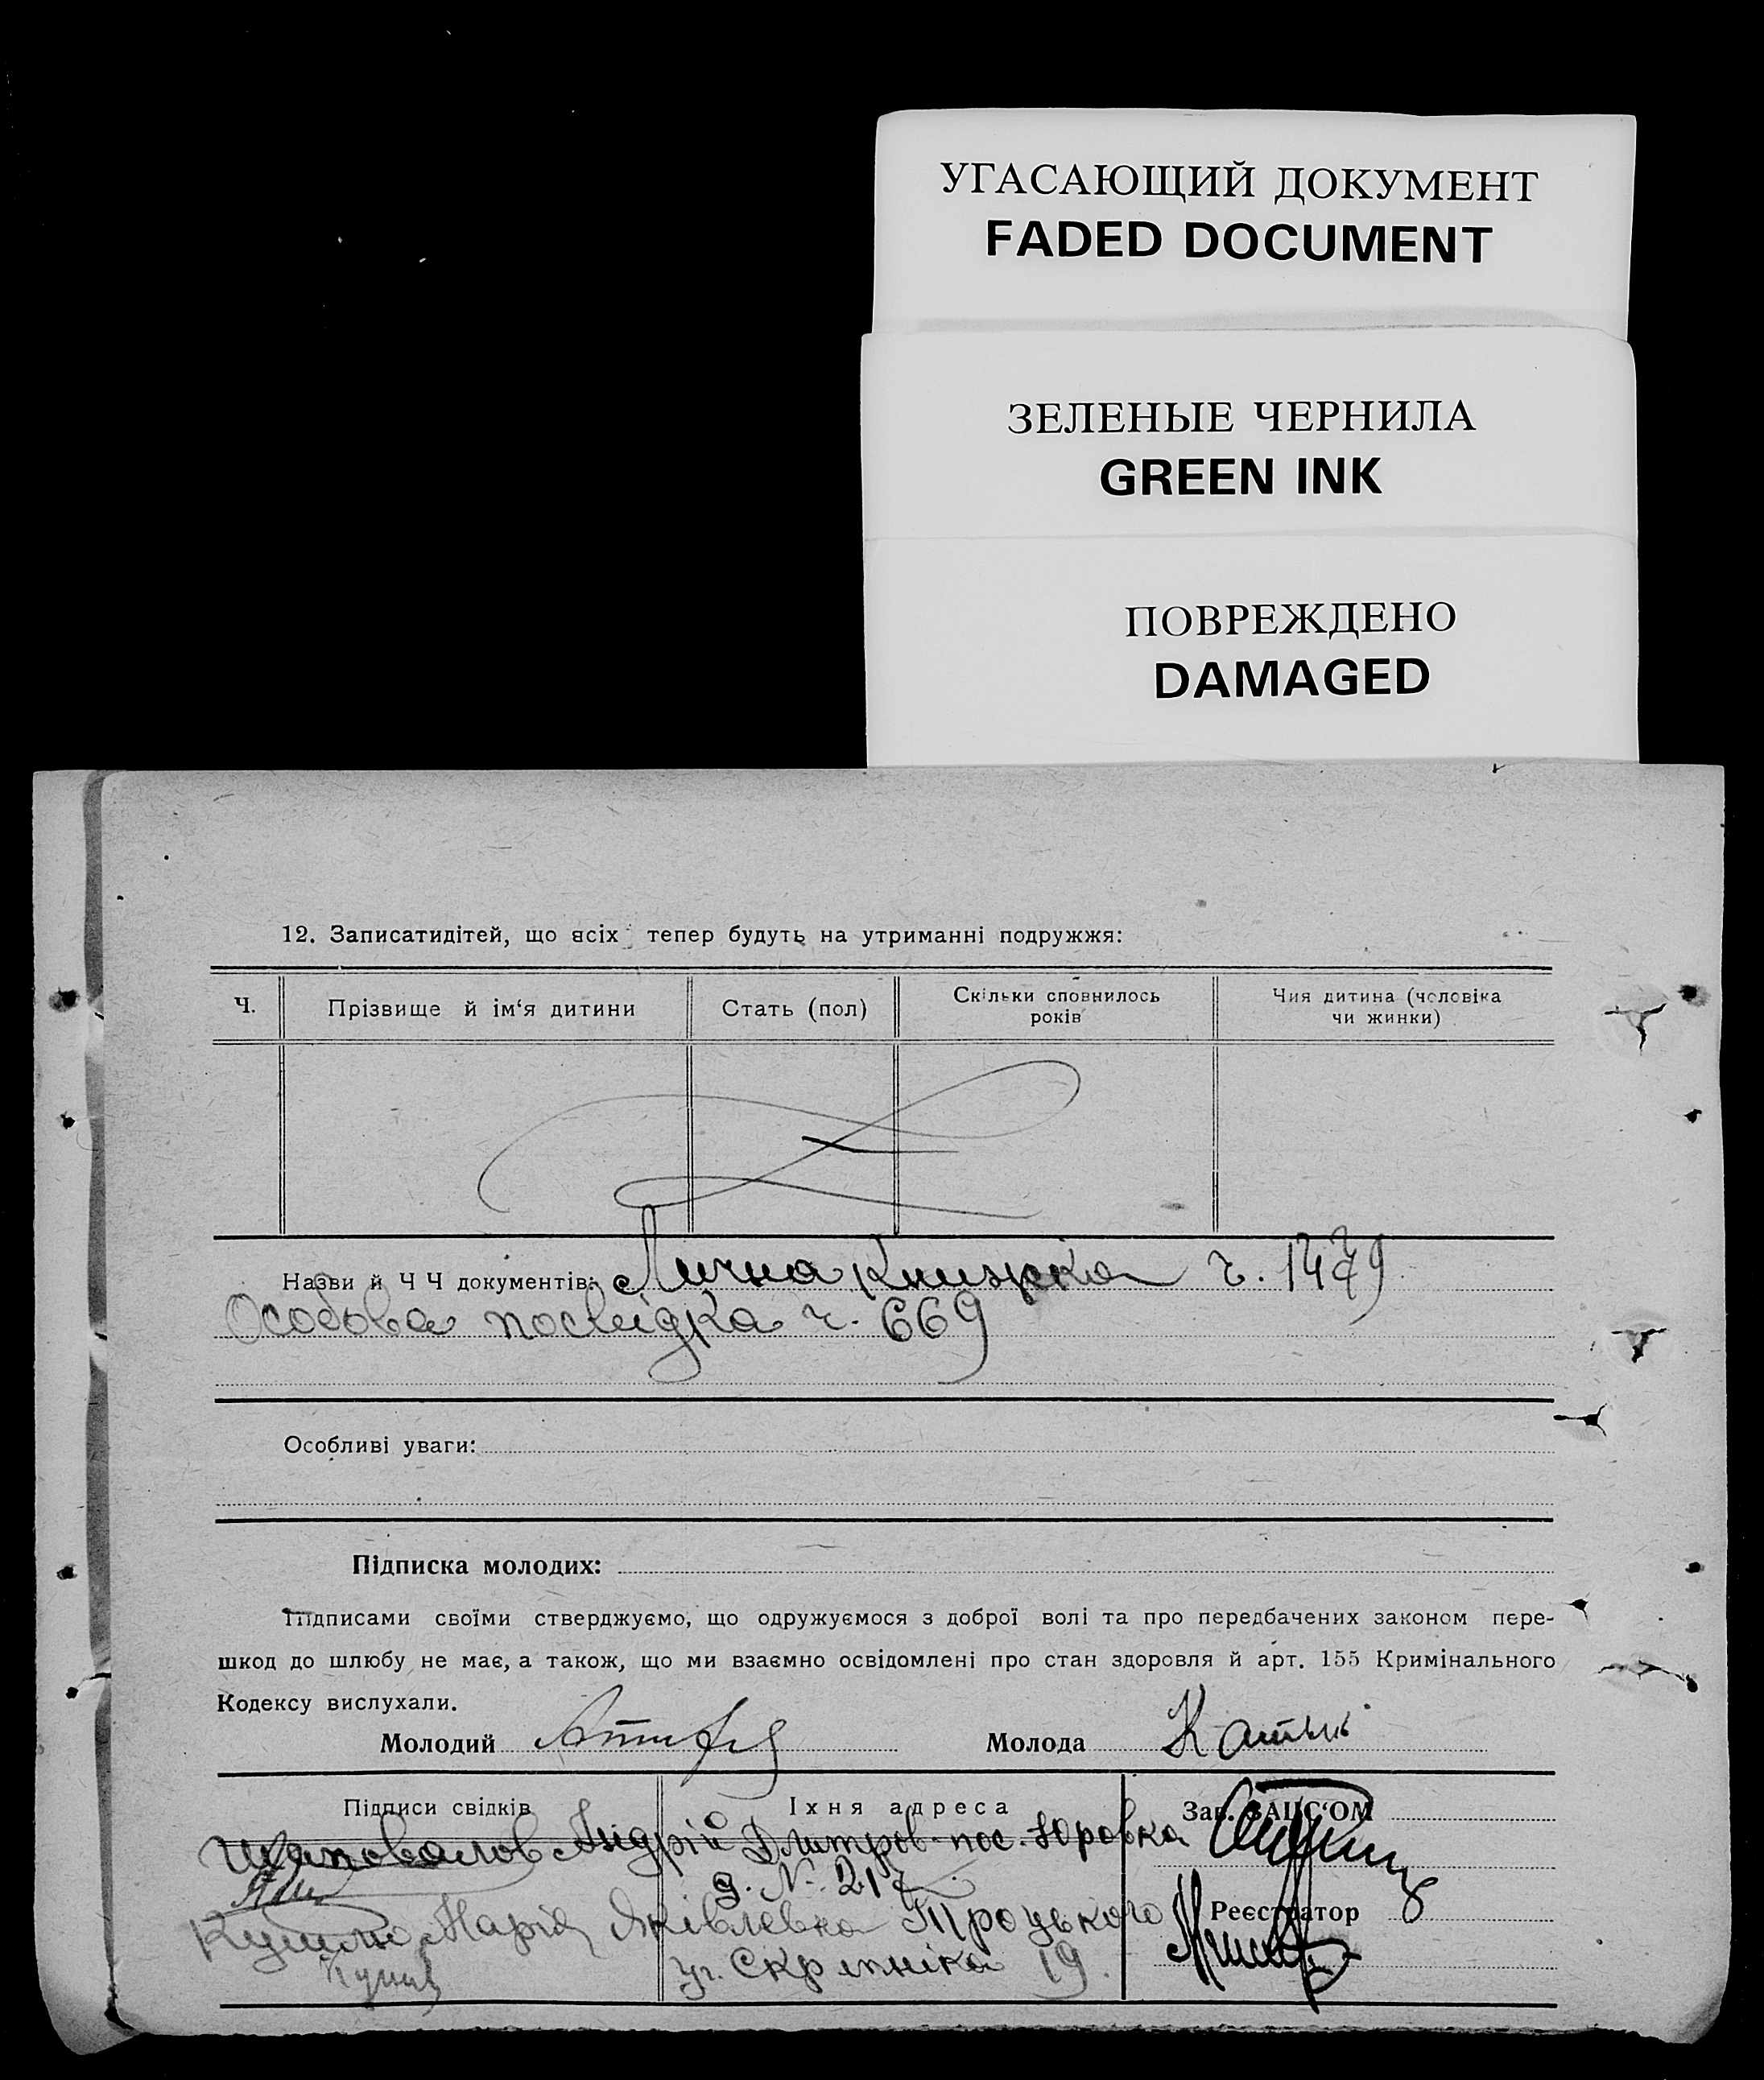 УГАСАЮЩИЙ ДОКУМЕНТ
FADED DOCUMENT
ЗЕЛЕНЫЕ ЧЕРНИЛА
GREEN INK
ПОВРЕЖДЕНО
DAMAGED
12. Записатидітей, що всіх тепер будуть на утриманні подружжя:
Ч.
Прізвище й ім‘я дитини
Стать (пол)
Скільки сповнилось
років
Чия дитина (чоловіка
чи жинки)
Назви й Ч Ч документів: Лична Книжка ч. 1479
Особова посвідка ч. 669
Особливі уваги:
Підписка молодих:
Підписами своїми стверджуємо, що одружуємося з доброї волі та про передбачених законом пере-
шкод до шлюбу не має, а також, що ми взаємно освідомлені про стан здоровля й арт. 155 Кримінального
Кодексу вислухали.
Молодий
Молода
Підписи свідків
Їхня адреса
Зав. ЗАЦС‘ОМ
Шаповалов Андрій Дмитров. пос. Юровка
д. №. 217
Марія Яківлевна Троцького
Реєстратор
19.